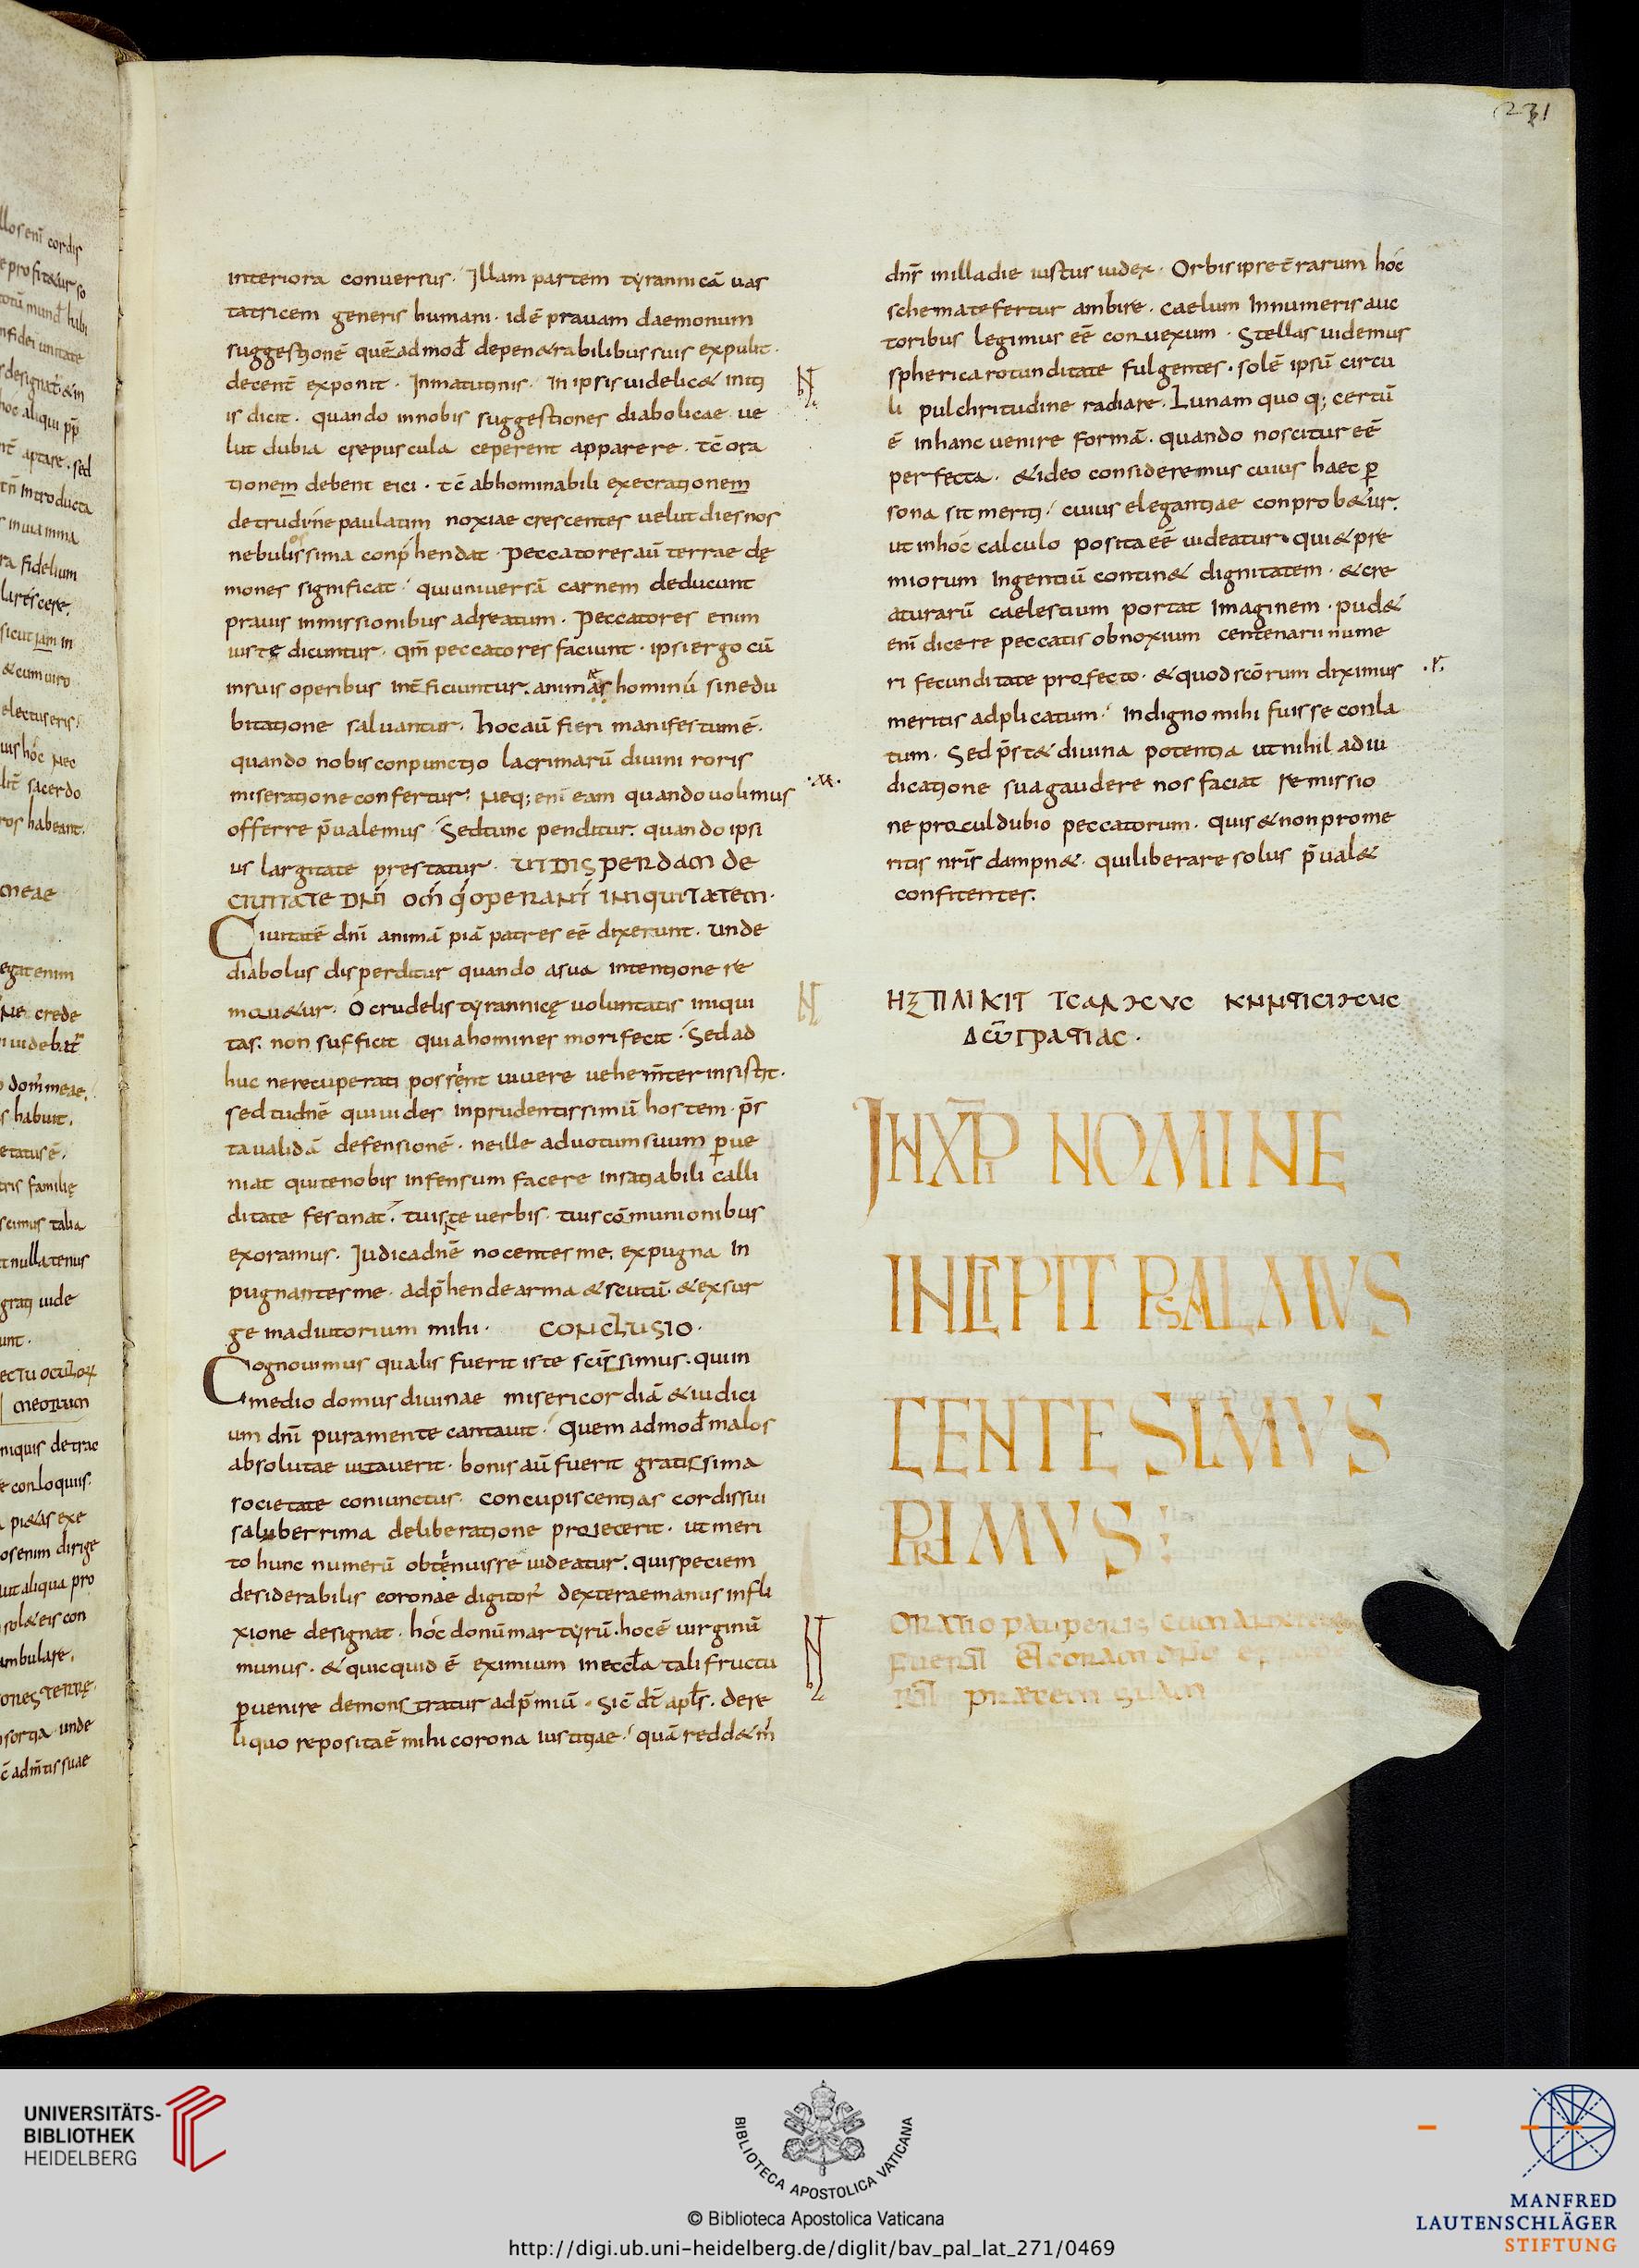 231
interiora conversus. Illam partem tyrannicā vas
tatricem generis humani. idē pravam daemonum
suggestionē quēadmod̄ depenetrabilibus suis expulit.
decent̄ exponit. Inmatutinis. In ipsis videlicet initi
is dicit. quando innobis suggestiones diabolicae ve
lut dubia crepuscula ceperent apparere. tc̄ ora
tionem debent eici. tc̄ abhominabili execrationem
detrudine paulatim noxiae crescentes velut dies nos
nebulissima conp̄hendat. Peccatores aū terrae dę
mones significat. qui universā carnem deducunt
pravis inmissionibus adreatum. Peccatores enim
iuste dicuntur. qm̄ peccatores faciunt. ipsi ergo cū
insuis operibus int̄ficiuntur. animas hominū sinedu
bitatione salvantur. hoc aū fieri manifestum ē.
quando nobis conpunctio lacrimarū divini roris
miseratione confertur. Neq; eni eam quando volimus
offerre p̄valemus. Sed tunc penditur. quando ipsi
us largitate prestatur. UT DISPERDAM DE
CIVITATE DNI OM̄ Q̄ OPERANT INIQUITATEM.
Civitatē dnī animā piā patres eē dixerunt. unde
diabolus disperditur quando asua intentione re
movetur. O crudelis tyrannicę voluntatis iniqui
tas. non sufficit quia homines mori fecit. Sed ad
huc ne recuperati possent vivere vehem̄ter insistit.
sed tu dnē qui vides inprudentissimū hostem. p̄s
ta validā defensionē. ne ille ad votum suum p̱ve
niat qui te nobis infensum facere insatiabili calli
ditate festinat. tuis te verbis. tuis cōmunionibus
exoramus. Iudica dnē nocentes me, expugna in
pugnantes me. adp̄hende arma & scutū. & exsur
ge in adiutorium mihi. CONCLUSIO.
Cognovimus qualis fuerit iste scīssimus. qui in
medio domus divinae misericordiā & iudici
um dnī puramente cantavit. Quemadmod̄ malos
absolutae vitaverit. bonis aū fuerit gratissima
societate coniunctus. concupiscentias cordis sui
saluberrima deliberatione proiecerit. ut meri
to hunc numerū obtenuisse videatur. qui speciem
desiderabilis coronae digitor̄ dexterae manus infli
xione designat. hoc donū martyrū. hoc ē virginū
munus. & quicquid ē eximium in eccl̄a tali fructu
p̱venire demonstratur ad p̄miū. Sic dt̄ apl̄s. de re
liquo reposita ē mihi corona iustitiae. quā reddet m̄
dn̄s in illa die iustus iudex. Orbis ipse t̄rarum hoc
schemate fertur ambire. caelum Innumeris auc
toribus legimus eē convexum. Stellas videmus
spherica rotunditate fulgentes. solē ipsū circu
li pulchritudine radiare. Lunam quoq; certū
ē in hanc venire formā. quando noscitur eē
perfecta. & ideo consideremus cuius haec p̱
sona sit meriti. cuius elegantiae conprobetur.
ut in hoc calculo posita eē videatur. qui & pre
miorum Ingentiū continet dignitatem. & cre
aturarū caelestium portat Imaginem. pudet
enī dicere peccatis obnoxium centenarii nume
ri fecunditate profecto. & quod scōrum diximus
meritis adplicatum. Indigno mihi fuisse conla
tum. Sed p̄stet divina potentia ut nihil ad iu
dicatione sua gaudere nos faciat remissio
ne procul dubio peccatorum. quis & non prome
ritis nr̄is dampnet. qui liberare solus p̄valet
confitentes.
IN XPI NOMINE
INCIPIT PSALMUS
CENTESIMUS
PRIMUS:
ORATIO PAUPERIS CUM
UNIVERSITÄTS-
BIBLIOTHEK
HEIDELBERG
BIBLIOTECA APOSTOLICA VATICANA
© Biblioteca Apostolica Vaticana
http://digi.ub.uni-heidelberg.de/diglit/bav_pal_lat_271/0469
MANFRED
LAUTENSCHLÄGER
STIFTUNG